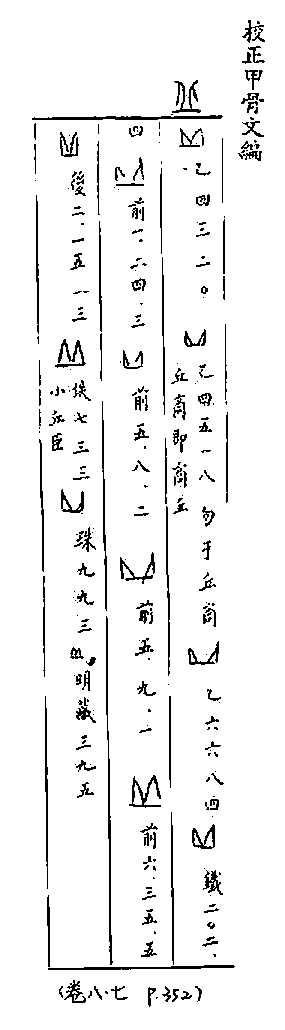 校正甲骨文編
乙四三二〇 乙四五一八 勿于丘商
丘商即商丘
乙六六八四 鐵二〇二.
四 前一.二四.三 前五.八.二 前五.九.一 前六.三五.五
後二.一五一三 佚七三三
小丘臣
珠九九三 明藏三九五
(卷八.七 P.352)